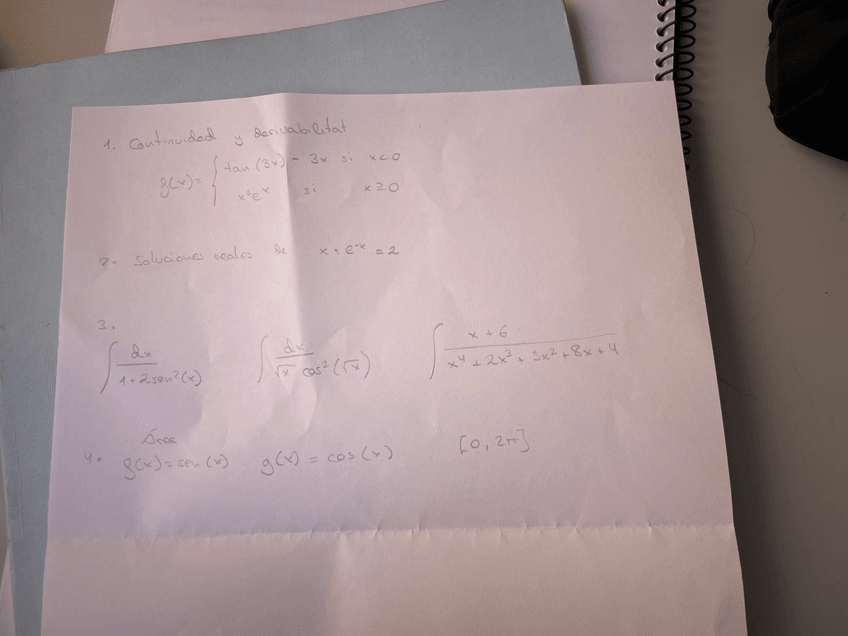 1. Continuidad y derivabilitat
g(x) = { tan (3x) - 3x si x<0
x²eˣ si x≥0
2. Soluciones reales de x + e⁻ˣ = 2
3.
∫ dx / (1+2sen²(x)) ∫ dx / (√x cos²(√x)) ∫ (x + 6) / (x⁴ + 2x³ + 5x² + 8x + 4)
Área
4. g(x) = sen (x) g(x) = cos (x) [0, 2π]